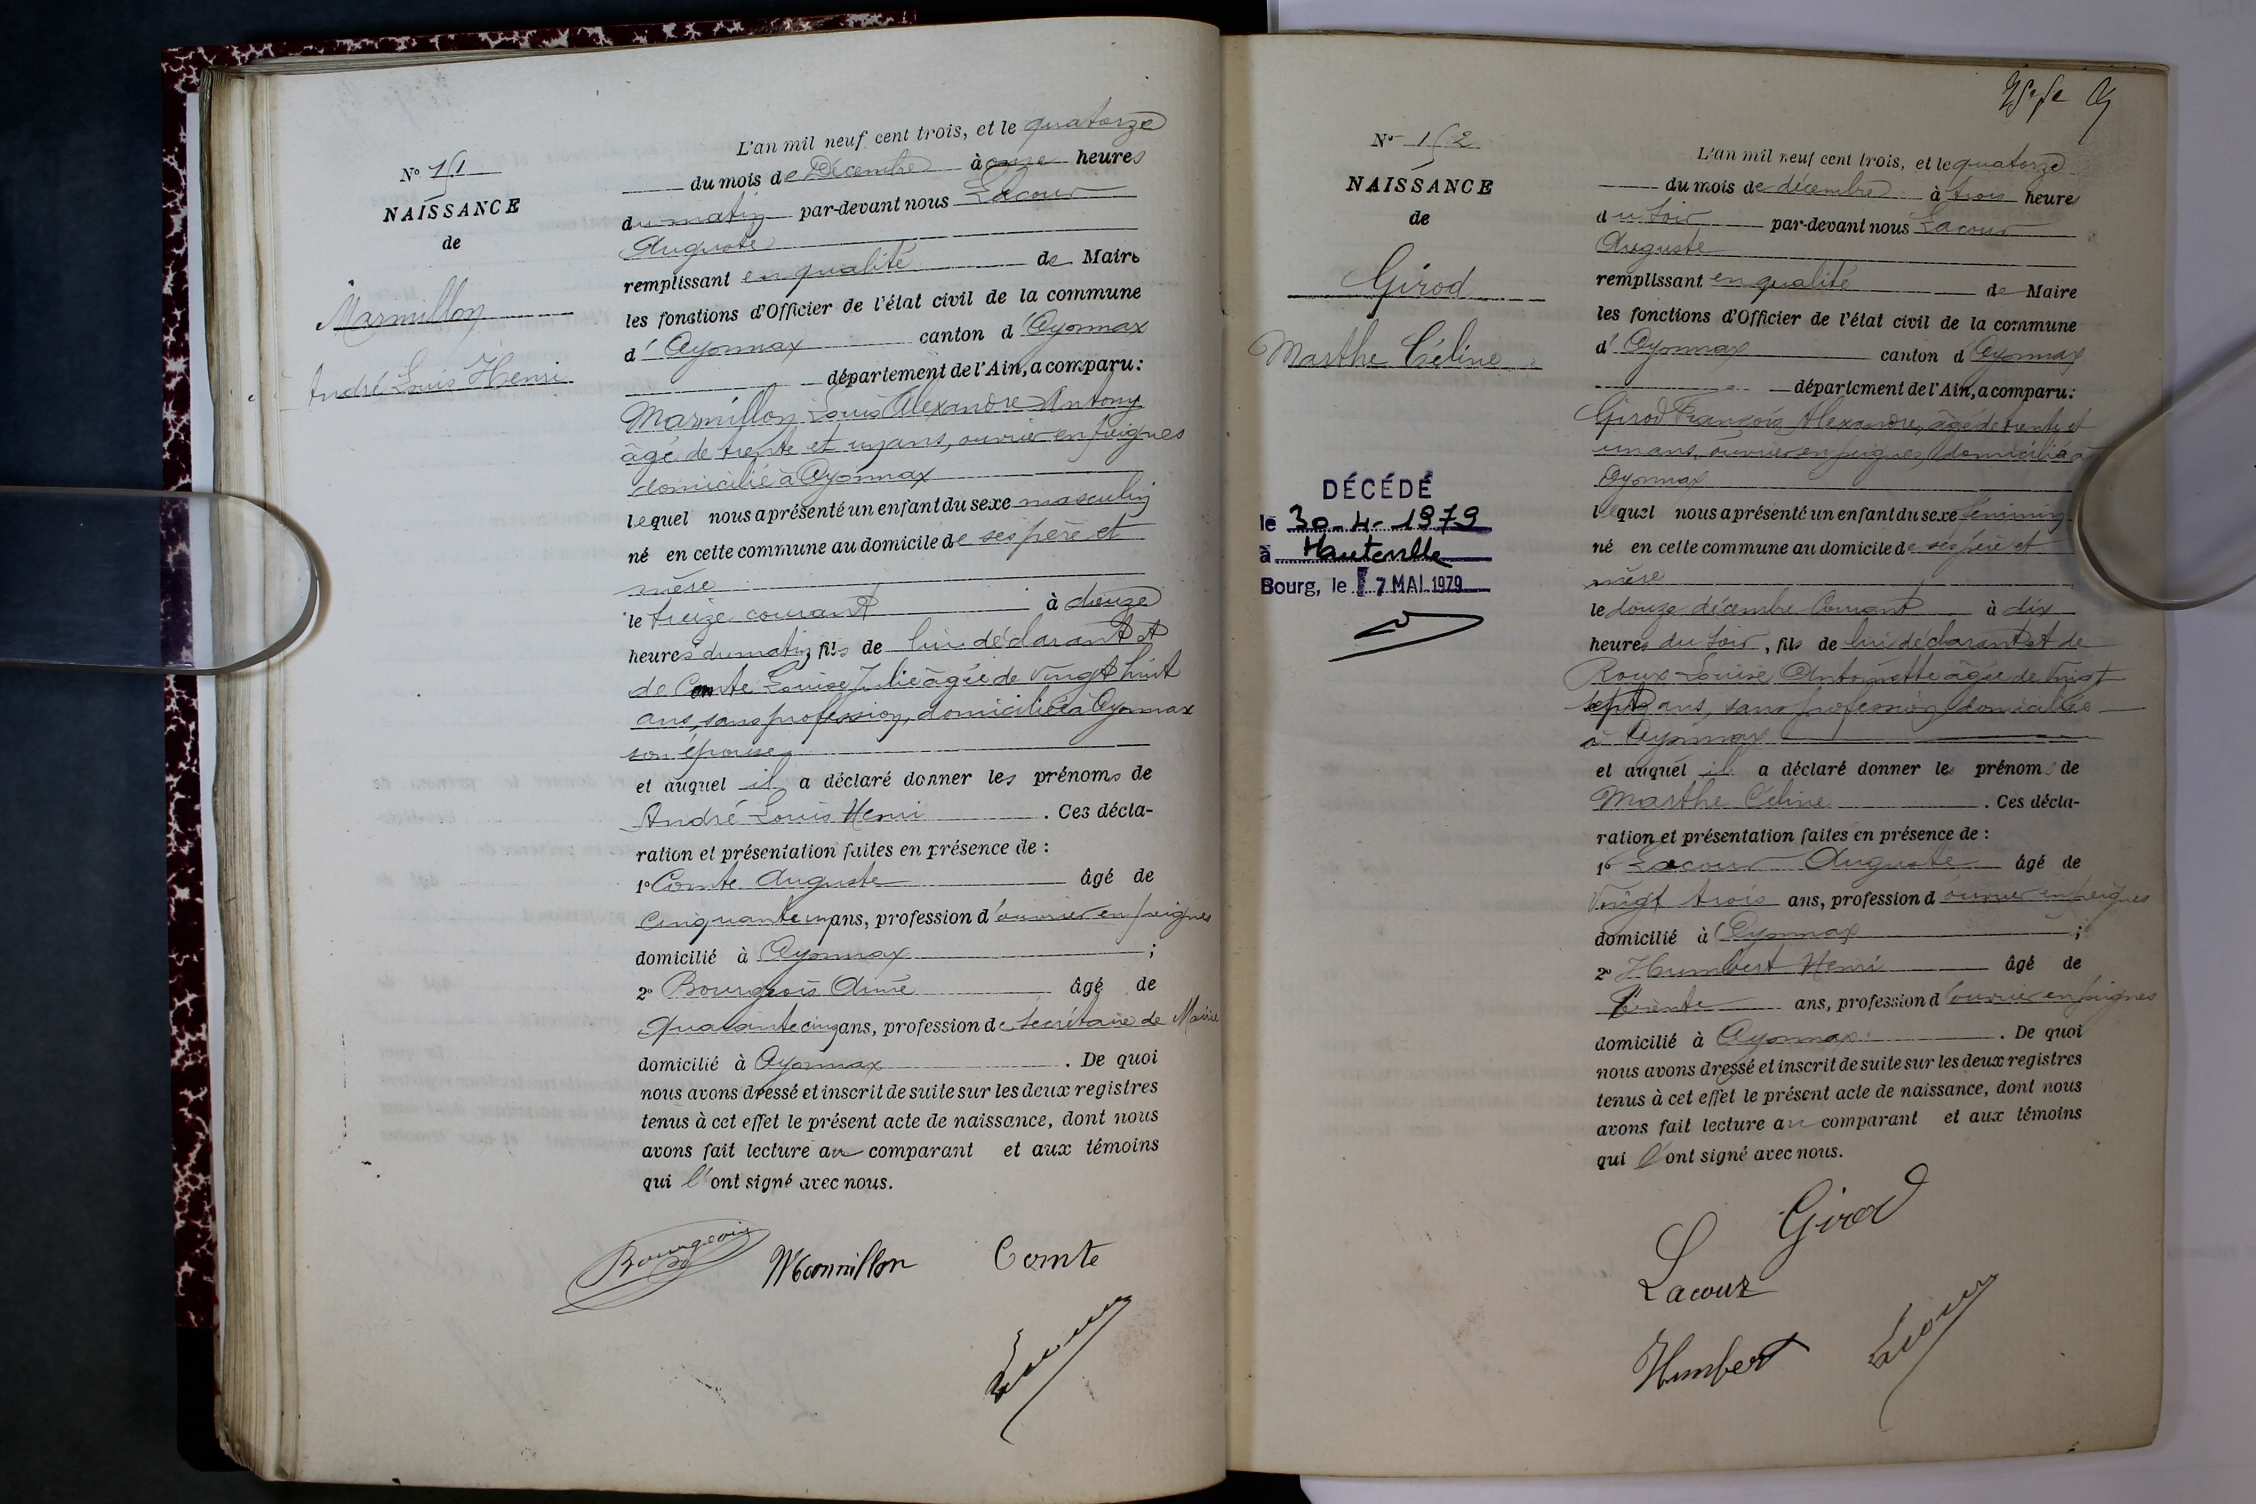 N° 151
NAISSANCE
de
Marmillon
André Louis Henri
L'an mil neuf cent trois, et le quatorze
du mois de Décembre à onze heures
du matin par-devant nous Lacour
Auguste
remplissant en qualité de Maire
les fonctions d'Officier de l'état civil de la commune
d' Oyonnax canton d'Oyonnax
département de l'Ain, a comparu :
Marmillon Louis Alexandre Antony
âgé de trente et un ans, ouvrier en peignes
domicilié à Oyonnax
lequel nous a présenté un enfant du sexe masculin
né en cette commune au domicile de ses père et
mère
le treize courant à
heures du matin, fils de lui déclarant et
de Comte Louise Julie âgée de vingt huit
ans, sans profession, domiciliée à Oyonnax
son épouse
et auquel il a déclaré donner les prénoms de
André Louis Henri . Ces décla-
ration et présentation faites en présence de :
1° Comte Auguste âgé de
cinquante un ans, profession d'ouvrier en peignes
domicilié à Oyonnax ;
2° Bourgeois Aimé âgé de
quarante cinq ans, profession de secrétaire de Mairie
domicilié à Oyonnax . De quoi
nous avons dressé et inscrit de suite sur les deux registres
tenus à cet effet le présent acte de naissance, dont nous
avons fait lecture au comparant et aux témoins
qui l'ont signé avec nous.
Bourgeois Marmillon Comte
N° 152
NAISSANCE
de
Girod
Marthe Céline
DÉCÉDÉ
le 30-4-1979
à Hauteville
Bourg, le 7 MAI 1979
L'an mil neuf cent trois, et le quatorze
du mois de décembre à trois heures
du soir par-devant nous Lacour
Auguste
remplissant en qualité de Maire
les fonctions d'Officier de l'état civil de la commune
d' Oyonnax canton d'Oyonnax
département de l'Ain, a comparu :
Girod François Alexandre, âgé de trente et
un ans, ouvrier en peignes, domicilié à
Oyonnax
lequel nous a présenté un enfant du sexe féminin
né en cette commune au domicile de ses père et
mère
le douze décembre courant à dix
heures du soir, fils de lui déclarant et de
Roux Louise Antoinette âgée de vingt
sept ans, sans profession, domiciliée
à Oyonnax
et auquel il a déclaré donner les prénoms de
Marthe Céline . Ces décla-
ration et présentation faites en présence de :
1° Lacour Auguste âgé de
vingt trois ans, profession d'ouvrier en peignes
domicilié à Oyonnax ;
2° Humbert Henri âgé de
trente ans, profession d'ouvrier en peignes
domicilié à Oyonnax . De quoi
nous avons dressé et inscrit de suite sur les deux registres
tenus à cet effet le présent acte de naissance, dont nous
avons fait lecture au comparant et aux témoins
qui l'ont signé avec nous.
Girod
Lacour
Humbert